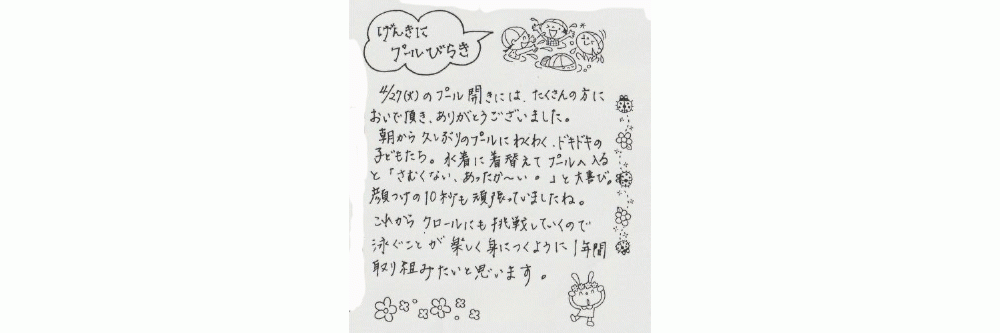 げんきに
プールびらき
4/27(火)のプール開きには、たくさんの方に
おいで頂き、ありがとうございました。
朝から久しぶりのプールにわくわく、ドキドキの
子どもたち。水着に着替えてプールへ入る
と「さむくない、あったか〜い。」と大喜び。
顔つけの10秒も頑張っていましたね。
これから クロールにも挑戦していくので
泳ぐことが楽しく身につくように1年間
取り組みたいと思います。